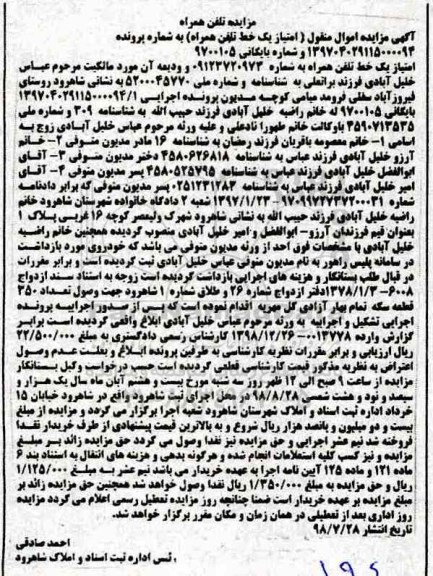 مزایده تلفن همراه
آگهی مزایده اموال منقول (امتیاز یک خط تلفن همراه) به شماره پرونده
۱۳۹۷۰۴۰۲۹۱۱۵۰۰۰۰۹۴ و شماره بایگانی ۹۷۰۰۱۰۵
امتیاز یک خط تلفن همراه به شماره ۰۹۱۲۳۷۲۰۹۷۳ و ودیعه آن مورد مالکیت مرحوم عباس
خلیل آبادی فرزند براتعلی به شناسنامه و شماره ملی ۵۲۰۰۰۴۵۷۷۰ به نشانی شاهرود روستای
فیروزآباد سفلی فرومد میامی کوچه مدیون پرونده اجرایی ۱۳۹۷۰۴۰۲۹۱۱۵۰۰۰۰۹۴/۱
بایگانی ۹۷۰۰۱۰۵ له خانم راضیه خلیل آبادی فرزند حبیب الله به شناسنامه ۳۰۹ و شماره ملی
۳۵۹۰۷۱۳۵۳۵ باوکالت خانم طهورا نادعلی و علیه ورثه مرحوم عباس خلیل آبادی زوج به
اسامی ۱- خانم معصومه باقریان فرزند رمضان به شناسنامه ۱۶ مادر مدیون متوفی ۲- خانم
آرزو خلیل آبادی فرزند عباس به شناسنامه ۴۵۸۰۶۲۶۸۱۸ دختر مدیون متوفی ۳- آقای
ابوالفضل خلیل آبادی فرزند عباس به شناسنامه ۴۵۸۰۵۲۵۷۹۵ پسر مدیون متوفی ۴- آقای
امیر خلیل آبادی فرزند عباس به شناسنامه ۰۲۵۱۲۳۱۲۸۴ پسر مدیون متوفی که برابر دادنامه
شماره ۹۷۰۹۹۷۲۳۷۲۷۰۰۰۳۱ - ۱۳۹۷/۱/۲۳ شعبه ۲ دادگاه خانواده شهرستان شاهرود خانم
راضیه خلیل آبادی فرزند حبیب الله به نشانی شاهرود شهرک ولیعصر کوچه ۱۶ غربی پلاک ۱
بعنوان قیم فرزندان آرزو- ابوالفضل و امیر خلیل آبادی منصوب گردیده همچنین خانم راضیه
خلیل آبادی با مشخصات فوق احد از ورثه مدیون متوفی می باشد که خودروی مورد بازداشت
در سامانه پلیس راهور به نام مدیون متوفی عباس خلیل آبادی ثبت گردیده است و برابر مقررات
در قبال طلب بستانکار و هزینه های اجرایی بازداشت گردیده است زوجه به استناد سند ازدواج
۶۰۰۸- ۱۳۷۸/۱/۳ دفتر ازدواج شماره ۲۶ و طلاق شماره ۱ شاهرود جهت وصول تعداد ۳۵۰
قطعه سکه تمام بهار آزادی کل مهریه اقدام نموده است که پس از صدور اجراییه پرونده
اجرایی تشکیل و اجراییه به ورثه مرحوم عباس خلیل آبادی ابلاغ واقعی گردیده است برابر
گزارش وارده ۰۰۱۳۷۷۸-۱۳۹۸/۱۲/۲۶ کارشناس رسمی دادگستری به مبلغ ۲۲/۵۰۰/۰۰۰
ریال ارزیابی و برابر مقررات نظریه کارشناسی به طرفین پرونده ابلاغ و بعلت عدم وصول
اعتراض به نظریه مذکور قیمت کارشناسی قطعی گردیده است حسب درخواست وکیل بستانکار
مزایده از ساعت ۹ صبح الی ۱۲ ظهر روز سه شنبه مورخ بیست و هشتم آبان ماه سال یک هزار و
سیصد و نود و هشت شمسی ۹۸/۸/۲۸ در محل اجرای ثبت شاهرود واقع در شاهرود خیابان ۱۵
خرداد اداره ثبت اسناد و املاک شهرستان شاهرود شعبه اجرا برگزار می گردد و مزایده از مبلغ
بیست و دو میلیون و پانصد هزار ریال شروع و به بالاترین قیمت پیشنهادی از طرف خریدار نقدا
فروخته شد نیم عشر اجرایی و حق مزایده نیز نقدا وصول می گردد حق مزایده زائد بر مبلغ
مزایده و نیز کسب کلیه استعلامات انجام شده و هرگونه بدهی و هزینه های انتقال به استناد بند ۶
ماده ۱۲۱ و ماده ۱۲۵ آیین نامه اجرا به عهده خریدار می باشد نیم عشر به مبلغ ۱/۱۲۵/۰۰۰
ریال و حق مزایده به مبلغ ۱/۳۵۰/۰۰۰ ریال نقدا وصول خواهد شد همچنین حق مزایده زائد بر
مبلغ مزایده بر عهده خریدار است ضمنا چنانچه روز مزایده تعطیل رسمی اعلام می گردد مزایده
روز اداری بعد از تعطیلی در همان زمان و مکان مقرر برگزار خواهد شد.
تاریخ انتشار ۹۸/۷/۲۸
احمد صادقی
رئیس اداره ثبت اسناد و املاک شاهرود